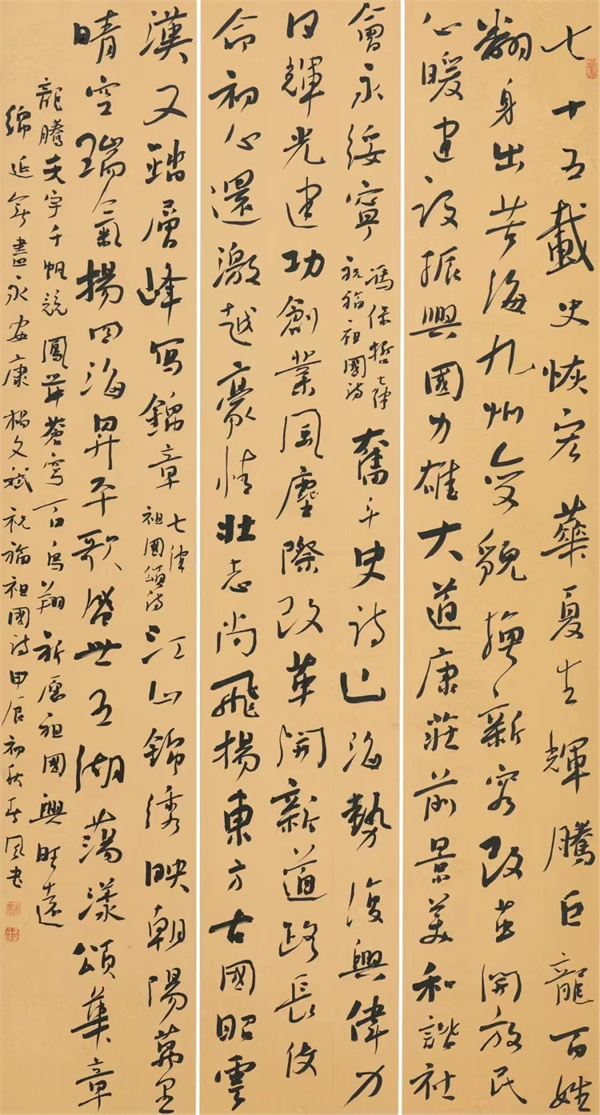 七十五載史恢宏華夏生輝騰巨龍百姓
翻身出苦海九州變貌換新容改革開放民
心暖建設振興國力雄大道康莊前景美和諧社
會永綏寧
馮保哲七律
祝福祖國詩
奮斗史詩山海勢復興偉力
日輝光建功創業風塵際改革開新道路長使
命初心還激越豪情壯志尚飛揚東方古國昭雲
漢又踏層峰寫錦章
七律
祖國頌詩
江山錦綉映朝陽萬里
晴空瑞氣揚四海昇平歌盛世五湖蕩漾頌華章
龍騰天宇千帆競鳳舞蒼穹百鳥翔祈愿祖國興旺遠
綿延無盡永安康楊文斌祝福祖國詩甲辰初秋春風書